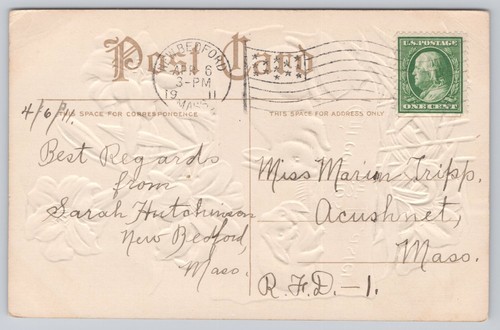 Post Card
NEW BEDFORD
APR 6
3-PM
19 11
MASS.
U.S. POSTAGE
ONE CENT
THIS SPACE FOR CORRESPONDENCE
THIS SPACE FOR ADDRESS ONLY
4/6/11.
Best Regards
from
Sarah Hutchinson
New Bedford,
Mass.
Miss Marion Tripp.
Acushnet,
Mass.
R.F.D.-1.